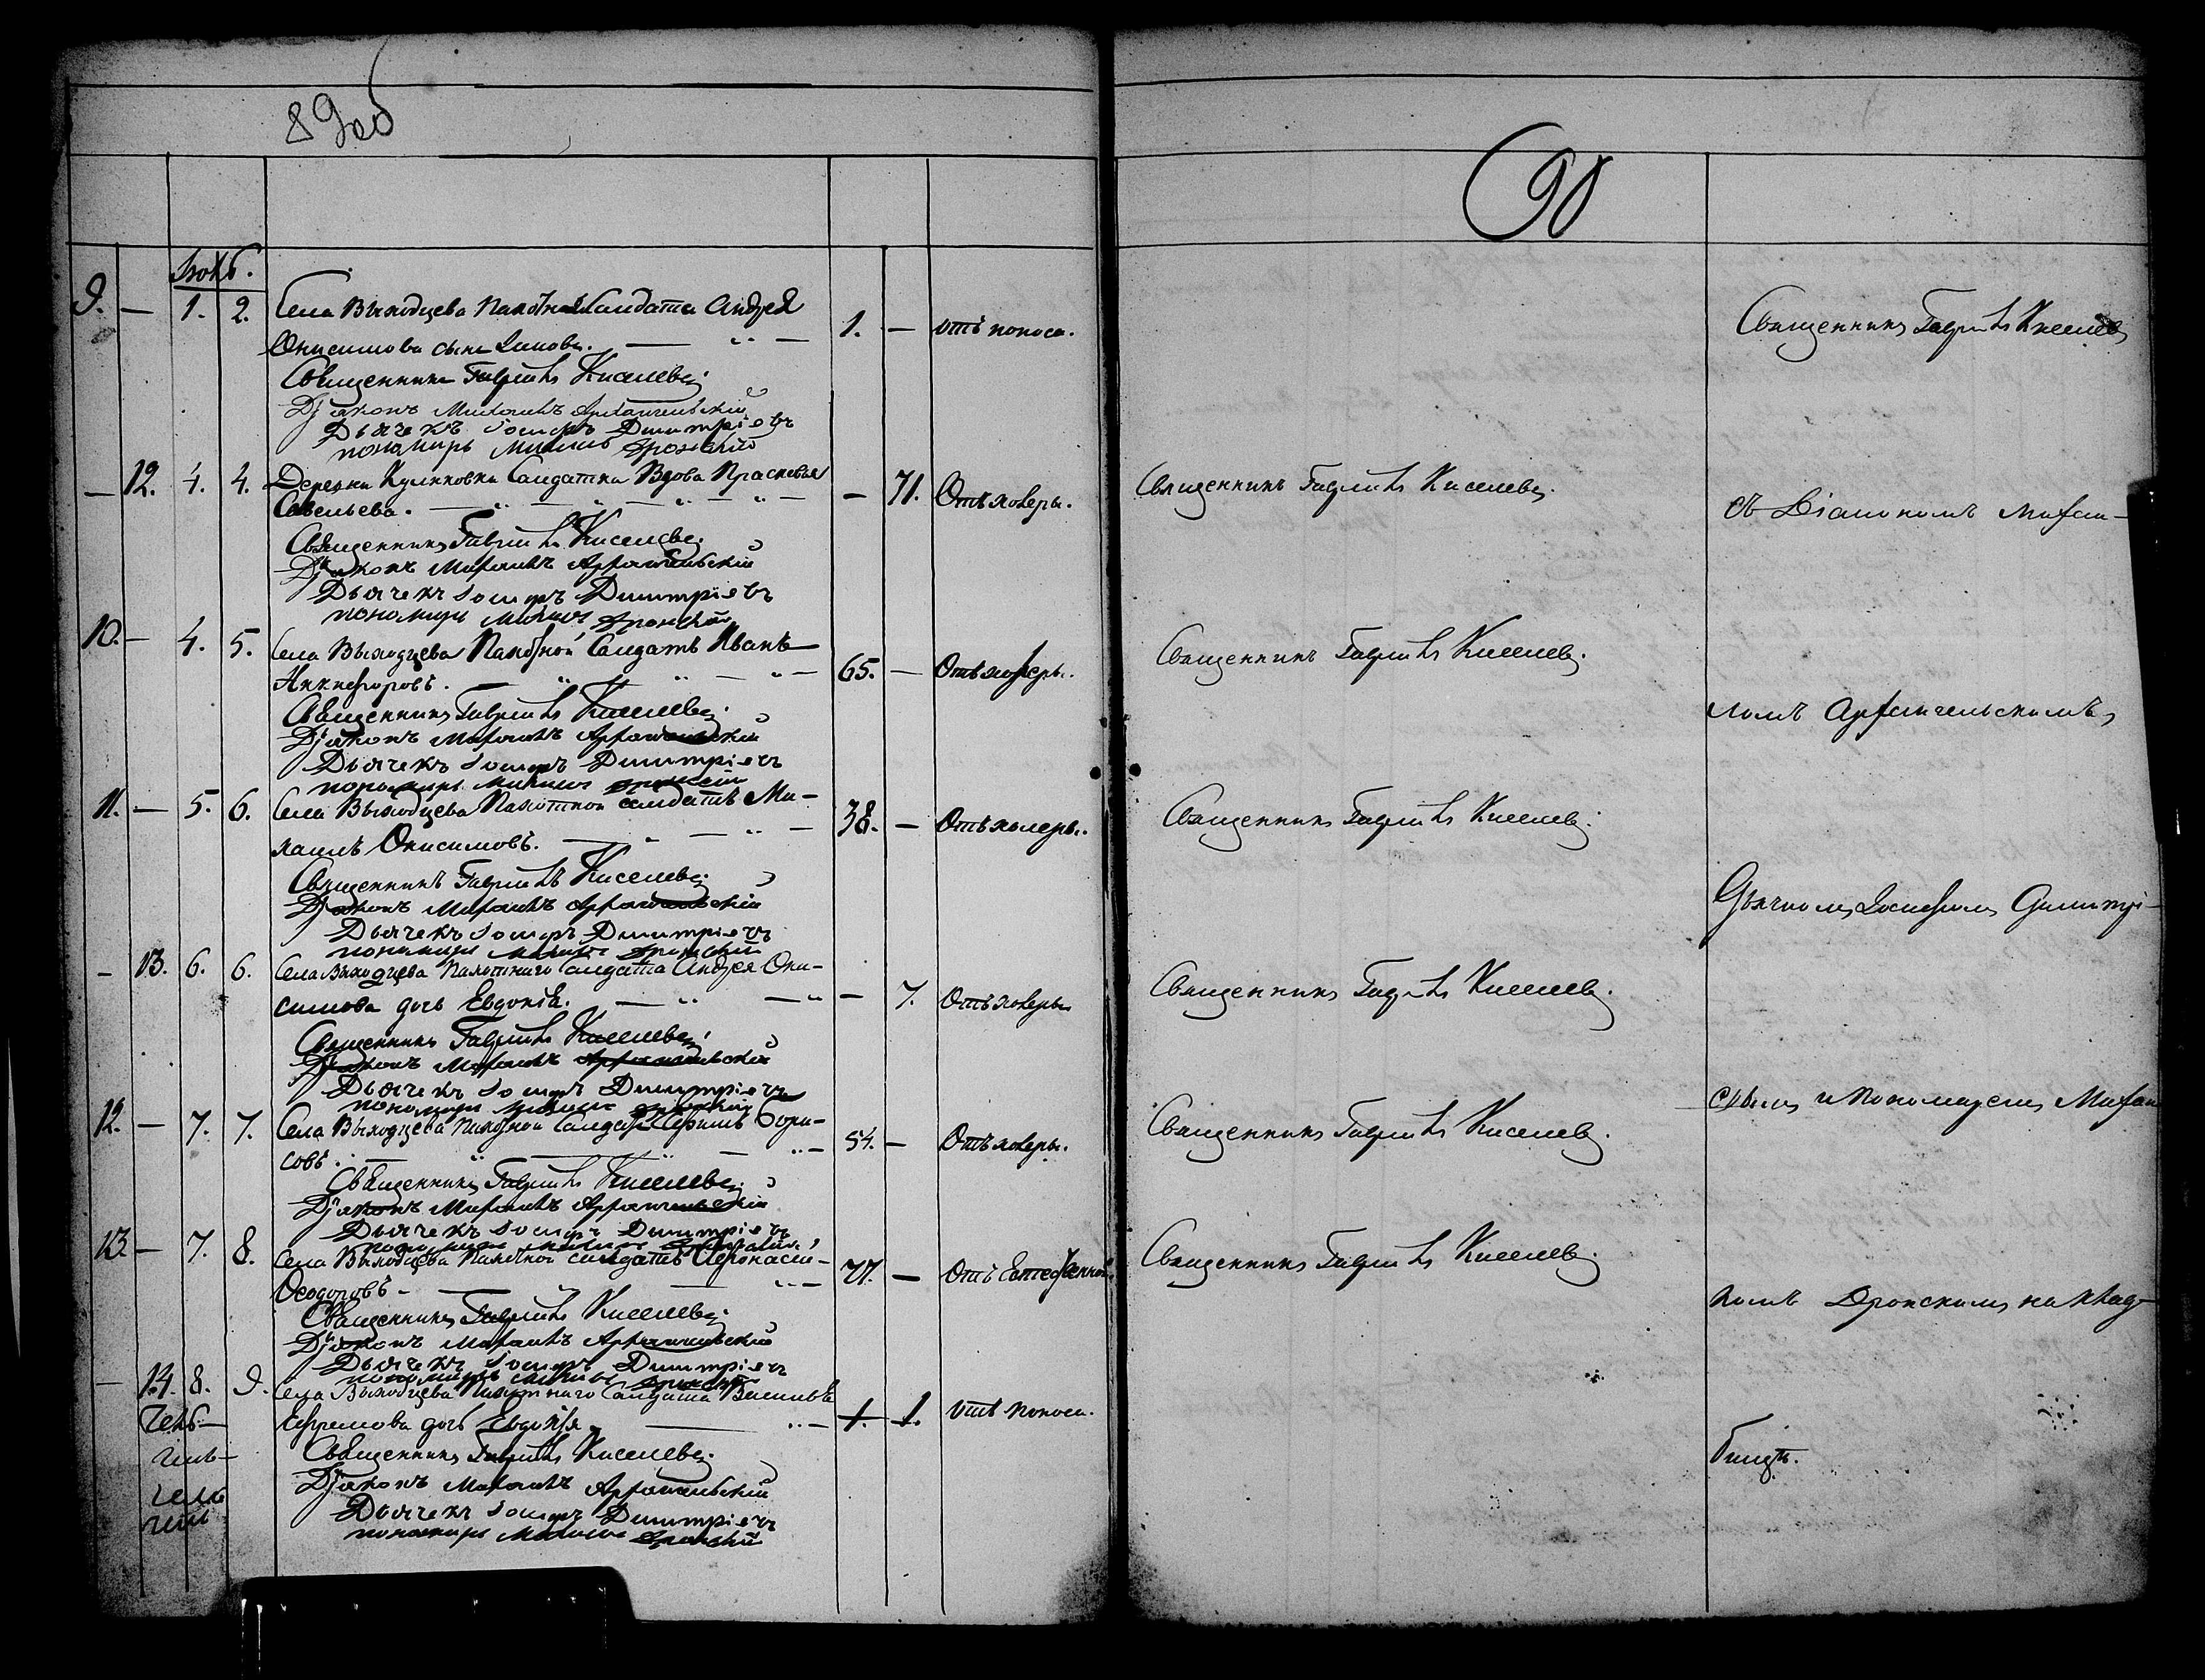 89 об
90
Іюль.
9. — 1. 2. Села Выходцева Пахотнаго Солдата Андрея 1. — отъ поноса. Священникъ Гавріилъ Киселевъ
Онисимова сынъ
Священникъ Гавріилъ Киселевъ
Діаконъ Михаилъ Архангельскій
Дьячекъ Іосифъ Димитріевъ
пономарь Михаилъ Дронскій
— 12. 4. 4. Деревни Куликовки Солдатка Вдова Прасковья — 71. Отъ холеры. Священникъ Гавріилъ Киселевъ. съ Діакономъ Михаи-
Савельева.
Священникъ Гавріилъ Киселевъ.
Діаконъ Михаилъ Архангельскій
Дьячекъ Іосифъ Димитріевъ
пономарь Михаилъ Дронскій
10. — 4. 5. Села Выходцева Пахотной Солдатъ Иванъ 65. — Отъ холеры. Священникъ Гавріилъ Киселевъ.
Никифоровъ.
Священникъ Гавріилъ Киселевъ.
Діаконъ Михаилъ Архангельскій ломъ Архангельскимъ,
Дьячекъ Іосифъ Димитріевъ
пономарь Михаилъ Дронскій
11. — 5. 6. Села Выходцева Пахотной солдатъ Ми- 38. — Отъ холеры. Священникъ Гавріилъ Киселевъ.
хаилъ Онисимовъ.
Священникъ Гавріилъ Киселевъ
Діаконъ Михаилъ Архангельскій Дьячкомъ Іосифомъ Димитрі-
Дьячекъ Іосифъ Димитріевъ
пономарь Михаилъ Дронскій
— 13. 6. 6. Села Выходцева Пахотнаго Солдата Андрея Они- — 7. Отъ холеры Священникъ Гавріилъ Киселевъ.
симова дочь Евдокія.
Священникъ Гавріилъ Киселевъ
Діаконъ Михаилъ Архангельскій
Дьячекъ Іосифъ Димитріевъ
пономарь Михаилъ Дронскій евымъ и Пономаремъ Михаи
12. — 7. 7. Села Выходцева Пахотной Солдатъ Ефимъ Бори- 54. — Отъ холеры. Священникъ Гавріилъ Киселевъ.
совъ.
Священникъ Гавріилъ Киселевъ
Діаконъ Михаилъ Архангельскій
Дьячекъ Іосифъ Димитріевъ
пономарь Михаилъ Дронскій
13. — 7. 8. Села Выходцева Пахотной солдатъ 77. — Священникъ Гавріилъ Киселевъ.
Ѳеодоровъ
Священникъ Гавріилъ Киселевъ ломъ Дронскимъ на клад-
Діаконъ Михаилъ Архангельскій
Дьячекъ Іосифъ Димитріевъ
пономарь Михаилъ Дронскій
— 14. 8. 9. Села Выходцева Пахотнаго Солдата Василья 1. отъ поноса.
Ефремова дочь Евдокія
Священникъ Гавріилъ Киселевъ. бищѣ.
Діаконъ Михаилъ Архангельскій
Дьячекъ Іосифъ Димитріевъ
пономарь Михаилъ Дронскій